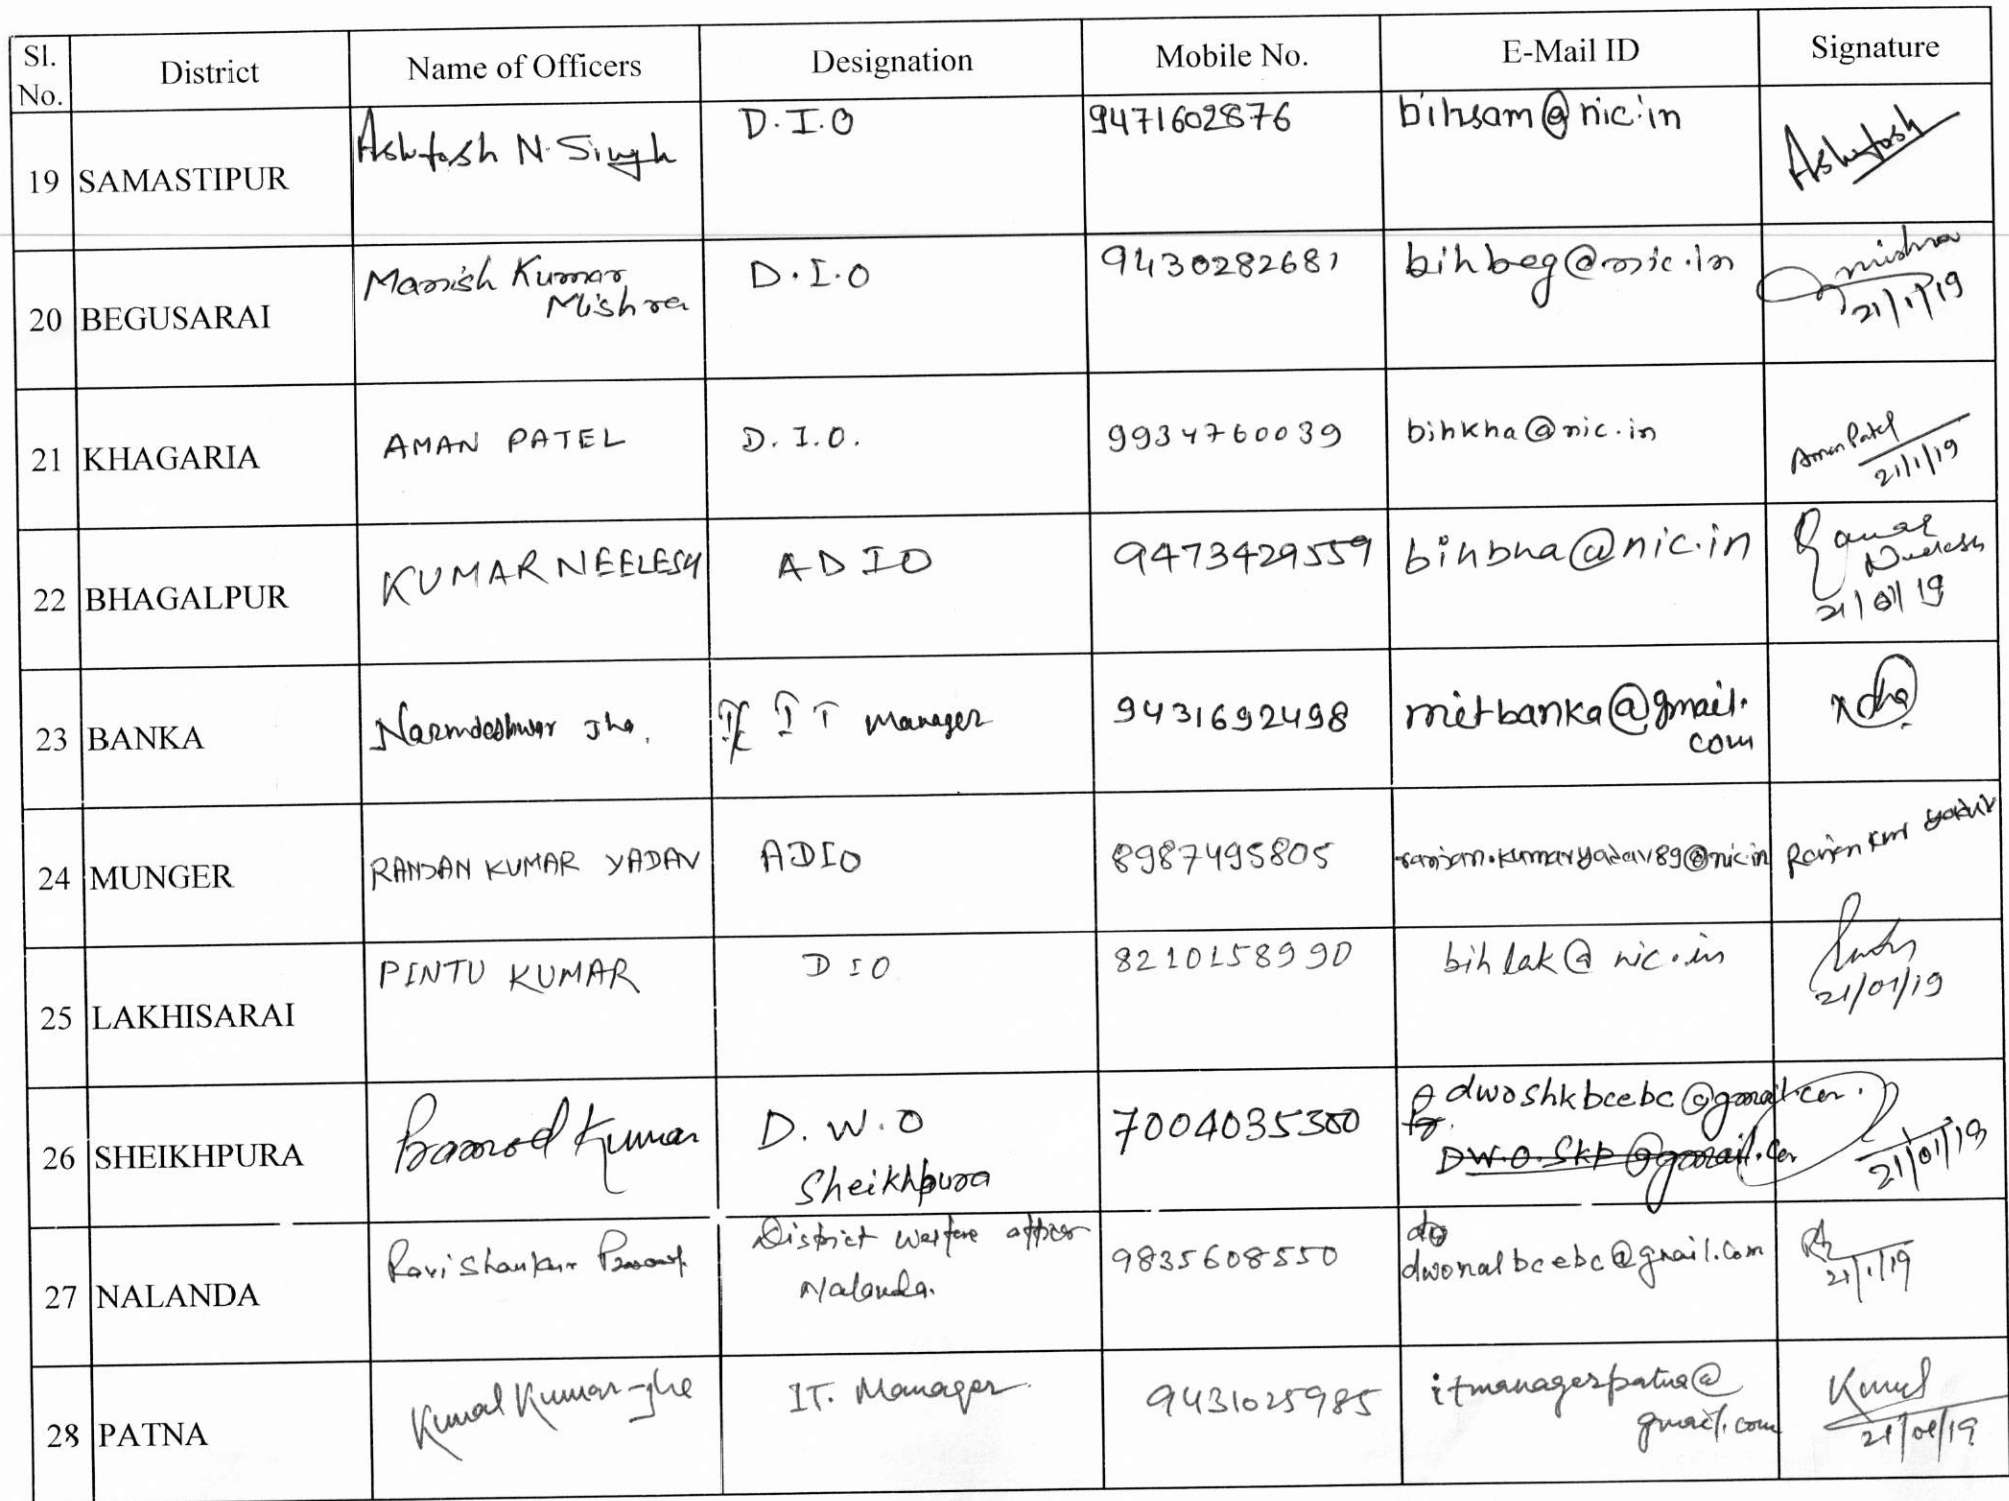 Sl. No. District Name of Officers Designation Mobile No. E-Mail ID Signature
19 SAMASTIPUR Ashutosh N. Singh D.I.O 9471602876 bihsam@nic.in Ashutosh
20 BEGUSARAI Manish Kumar Mishra D.I.O 9430282681 bihbeg@nic.in mishra 21/1/19
21 KHAGARIA AMAN PATEL D.I.O. 9934760039 bihkha@nic.in Aman Patel 21/1/19
22 BHAGALPUR KUMAR NEELESH ADIO 9473429559 bihbha@nic.in Kumar Neelesh 21/01/19
23 BANKA Narmdeshwar Jha. I/C IT Manager 9431692498 mitbanka@gmail.com
24 MUNGER RANJAN KUMAR YADAV ADIO 8987495805 ranjan.kumaryadav89@nic.in Ranjan Kmr Yadav
25 LAKHISARAI PINTU KUMAR DIO 8210158990 bihlak@nic.in 21/01/19
26 SHEIKHPURA Pramod Kumar D.W.O Sheikhpura 7004035300 dwoshkbcebc@gmail.com D.W.O.SKP@gmail.com 21/01/19
27 NALANDA Ravi Shankar District Welfare officer Nalanda. 9835608550 dwonalbcebc@gmail.com 21/1/19
28 PATNA Kunal Kumar Jha IT. Manager 9431025985 itmanagerpatna@gmail.com Kunal 21/01/19